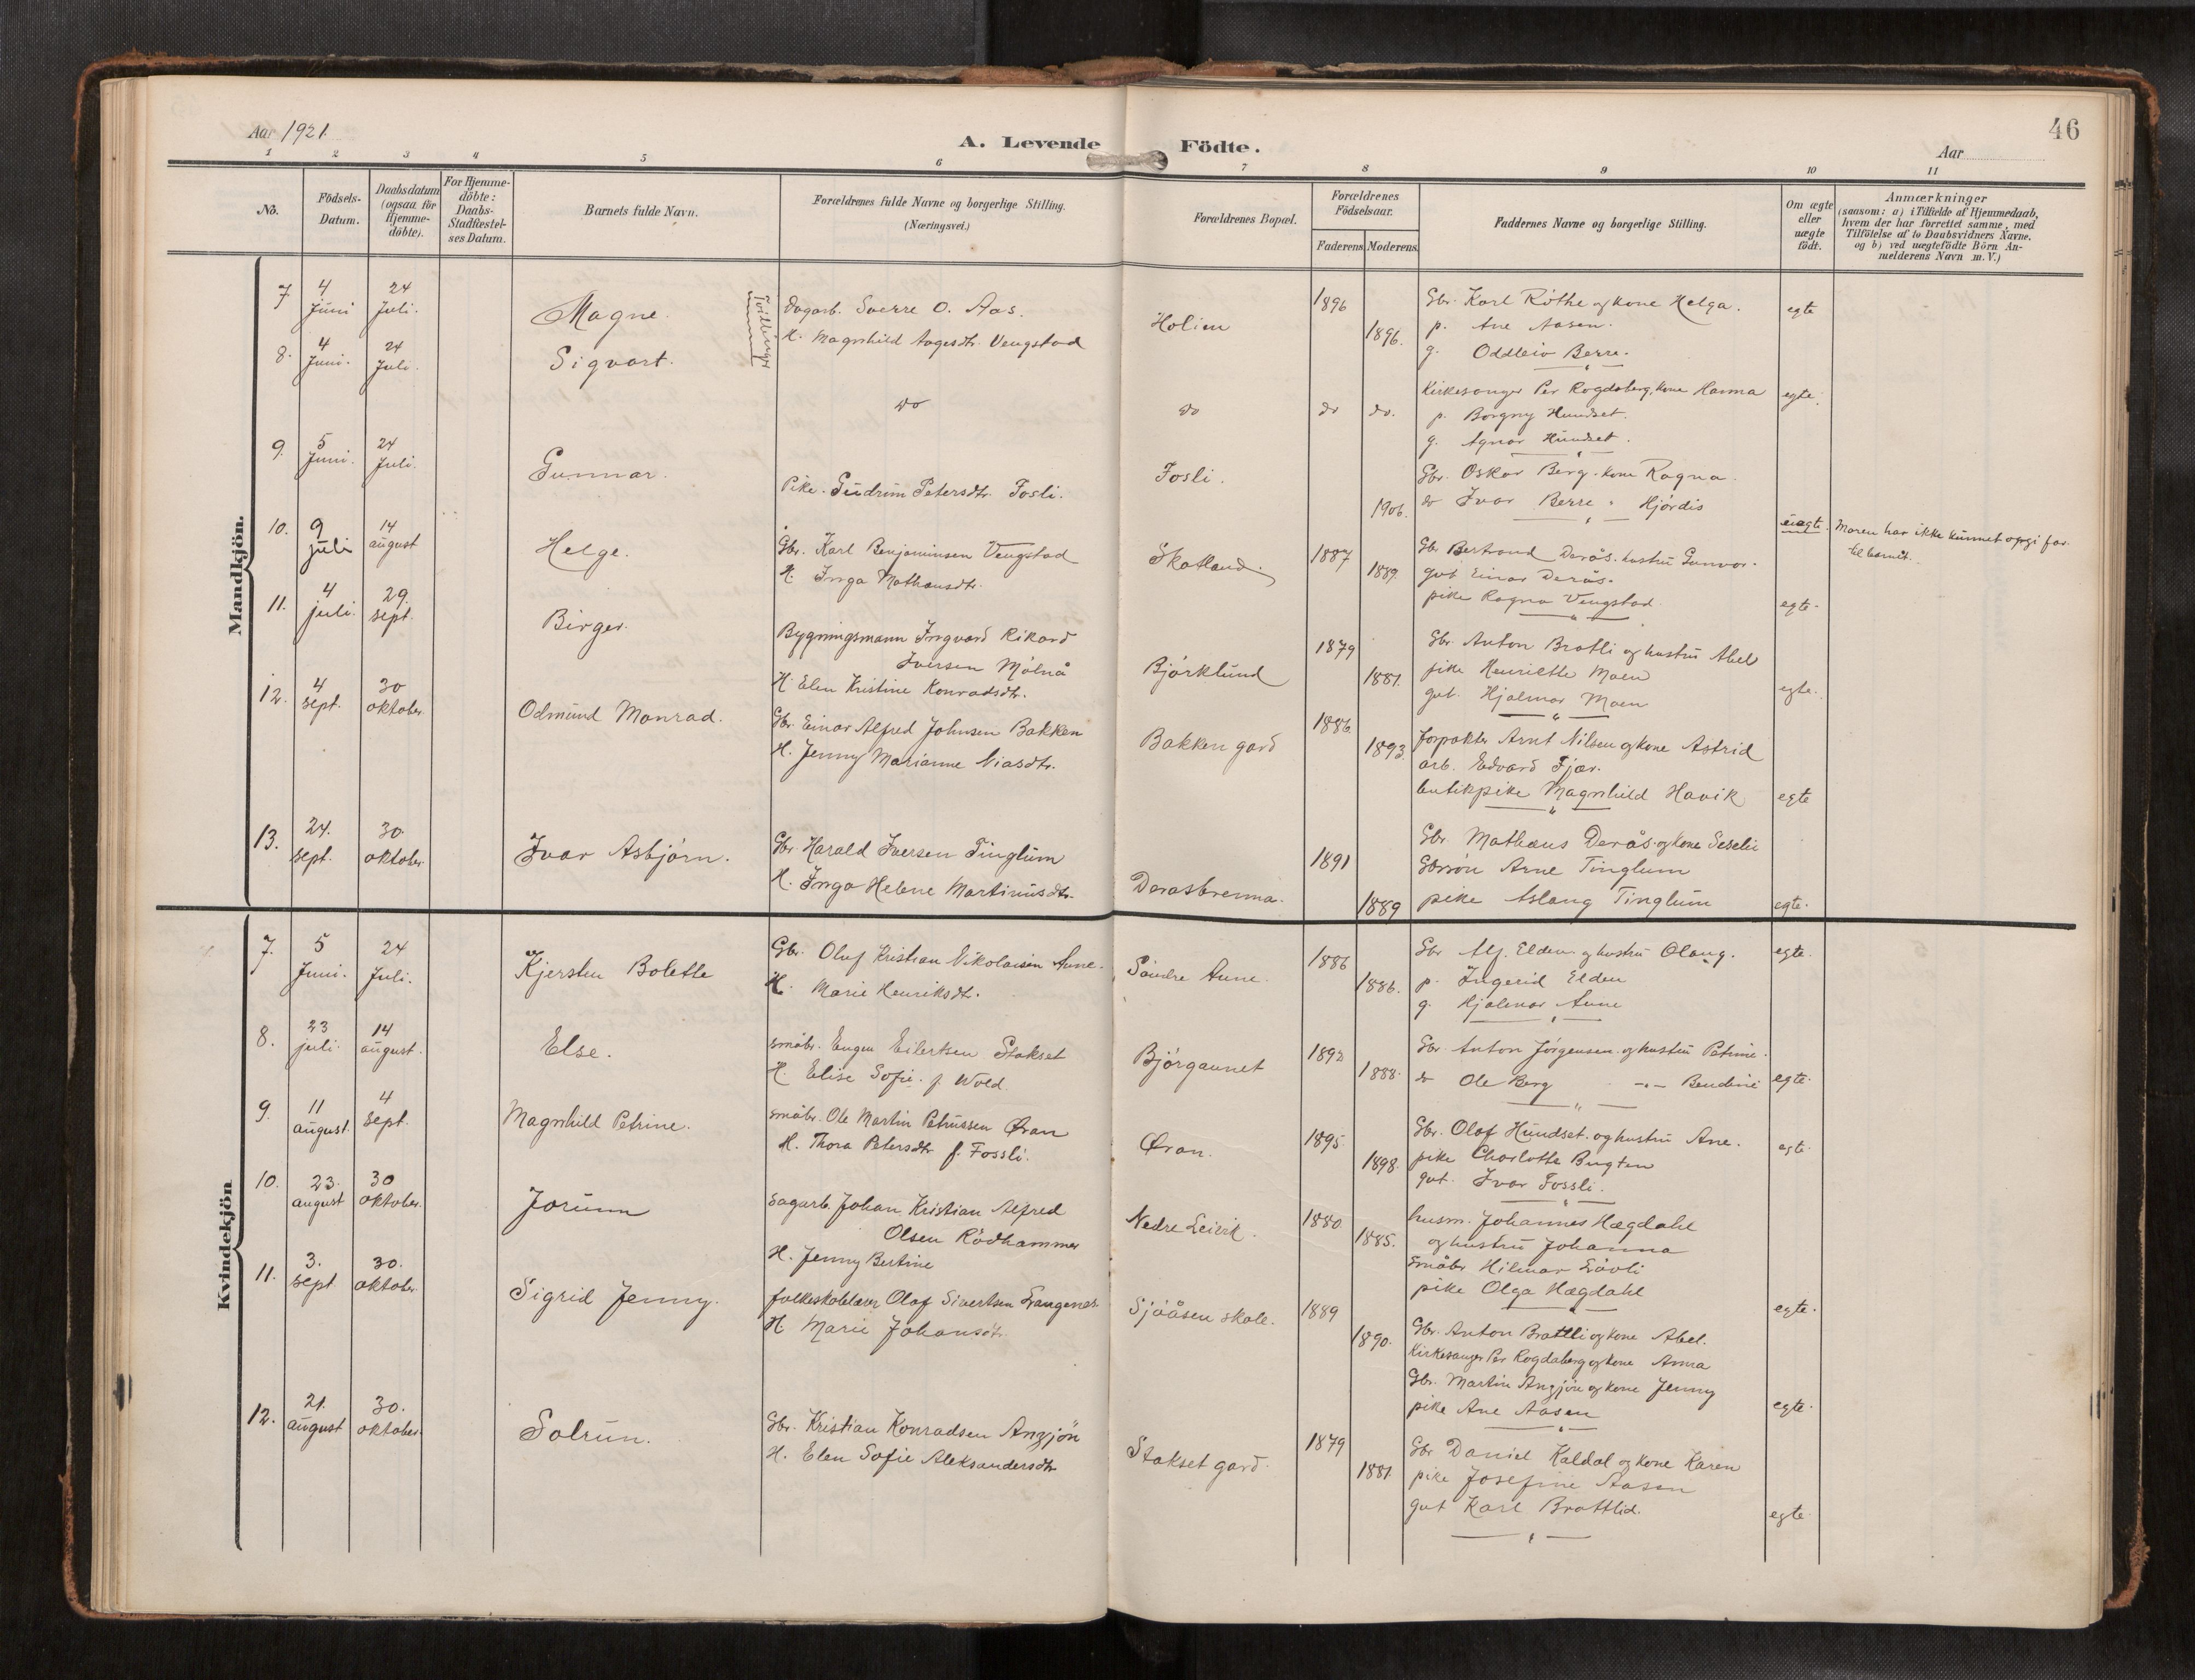 46
Aar 1921.
A. Levende Födte.
Aar
1 2 3 4 5 6 7 8 9 10 11
No.
Födsels-Datum.
Daabsdatum (ogsaa for Hjemmedöbte).
For Hjemmedöbte: Daabs-Stadfestelses Datum.
Barnets fulde Navn.
Forældrenes fulde Navne og borgerlige Stilling. (Næringsvei.)
Forældrenes Bopæl.
Forældrenes Födselsaar.
Faderens Moderens
Faddernes Navne og borgerlige Stilling.
Om ægte eller uægte födt.
Anmærkninger
(saasom: a) i Tilfælde af Hjemmedaab, hvem der har forrettet samme, med Tilföielse af to Daabsvidners Navne, og b) ved uægtefödte Börn Anmelderens Navn m. V.)
Mandkjön.
7 4 Juni 24 Juli. Magne. Tvillinger
Dagarb. Sverre O. Aas.
H. Magnhild Aagesdtr. Vengstad
Holien 1896 1896.
Gbr. Karl Röthe og kone Helga.
p. Ane Aasen.
g. Oddleiv Berre.
egte
8. 4 Juni. 24 Juli. Sigvart.
do do do do.
Kirkesanger Per Rogdaberg, kone Hanna
p. Borgny Hundset.
g. Agnar Hundset.
egte.
9. 5 Juni. 24 Juli. Gunnar.
Pike. Gudrun Petersdtr. Fosli.
Fosli. 1906.
Gbr. Oskar Berg. kone Ragna.
do Ivar Berre " Hjördis
uægte. Moren har ikke kunnet opgi far til barnet.
10. 9 juli 14 august Helge.
Gbr. Karl Benjaminsen Vengstad
H. Inga Mathausdtr.
Skatland. 1887 1889.
Gbr Bertrand Derås. hustru Gunvor.
gut Einar Derås.
pike Ragna Vengstad
egte.
11. 4 juli. 29. sept. Birger.
Bygningsmann Ingvard Rikard
Iversen Mölnå
H. Elen Kristine Konradsdtr.
Björklund 1879 1881.
Gbr. Anton Bratli og hustru Abel
pike Henriette Moen
gut. Hjalmar Moen
egte.
12. 4 sept. 30 oktober. Odmund Monrad.
Gbr. Einar Alfred Johnsen Bakken
H. Jenny Marianne Niasdtr.
Bakken gard 1886. 1893.
forpakter Arnt Nilsen og kone Astrid
arb. Edvard Fjær.
butikpike Magnhild Havik
egte
13. 24. sept. 30. oktober. Ivar Asbjörn.
Gbr Harald Iversen Tinglum
H. Inga Helene Martinusdtr.
Derasbrenna. 1891 1889
Gbr. Mathæus Derås og kone Seselie
Gbrsön Arne Tinglum
pike Aslaug Tinglum
egte.
Kvindekjön
7. 5 Juni. 24 Juli. Kjersten Bolette
Gbr. Oluf Kristian Nikolaisen Aune.
H. Marie Henriksdtr.
Söndre Aune. 1886 1886.
Gbr Alf. Elden og hustru Olaug.
p. Ingerid Elden
g. Hjalmar Aune
egte.
8. 23 juli. 14 august. Else.
småbr. Eugen Eilertsen Stakset
H. Elise Sofie f. Wold.
Björgaunet 1892 1888.
Gbr. Anton Jörgensen og hustru Petrine.
do Ole Berg -"- Bendine
egte.
9. 11 august. 4 sept. Magnhild Petrine.
småbr. Ole Martin Petrussen Øran
H. Thora Petersdtr f. Fossli.
Øran. 1895. 1898.
Gbr. Olof Hundset. og hustru Ane.
pike Charlotte Bugten
gut. Ivar Fossli.
egte.
10. 23. august 30 oktober. Jorunn
Sagarb. Johan Kristian Alfred
Olsen Rödhammer
H. Jenny Bertine
Nedre Leirik. 1880. 1885.
husm. Johannes Hægdahl
og hustru Johanna
småbr Hilmar Lövli
pike Olga Hægdahl
egte.
11. 3. sept 30. oktober. Sigrid Jenny.
folkeskolelærer Olaf Sivertsen Langenes.
H. Marie Johansdtr.
Sjöåsen skole. 1889 1890.
Gbr. Anton Brattli og kone Abel.
Kirkesanger Per Rogdaberg og kone Anna
Gbr. Martin Angjön og kone Jenny
pike Ane Aasen
egte.
12. 21. august 30. oktober. Solrun.
Gbr. Kristian Konradsen Angjön
H. Elen Sofie Aleksandersdtr
Stakset gard. 1879 1881.
Gbr Daniel Kaldal og kone Karen
pike Josefine Aasen
gut Karl Brattlid.
egte